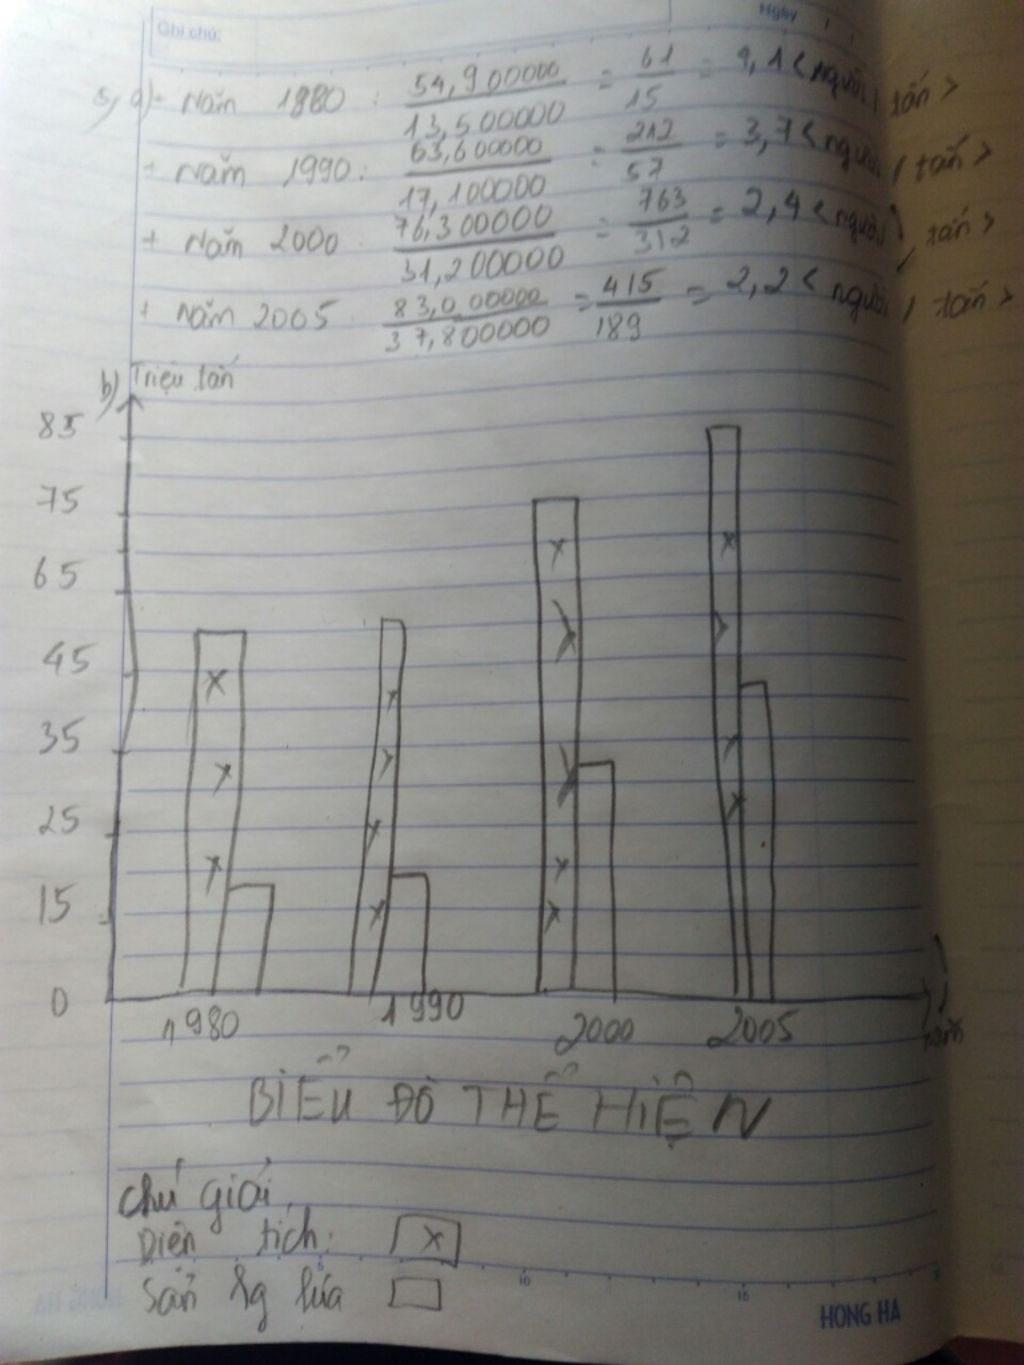 Ghi chú:
Ngày
5, a) - Năm 1980 : 54,900000 / 13,500000 = 61 / 15 = 4,1 < người / tấn >
+ Năm 1990 : 63,600000 / 17,100000 = 212 / 57 = 3,7 < người / tấn >
+ Năm 2000 76,300000 / 31,200000 = 763 / 312 = 2,4 < người / tấn >
+ Năm 2005 : 83,000000 / 37,800000 = 415 / 189 = 2,2 < người / tấn >
b) Triệu tấn
85
75
65
45
35
25
15
0
1980 1990 2000 2005 năm
BIỂU ĐỒ THỂ HIỆN
Chú giải
Diện tích: x
Sản lg lúa
5 10 15
HONG HA